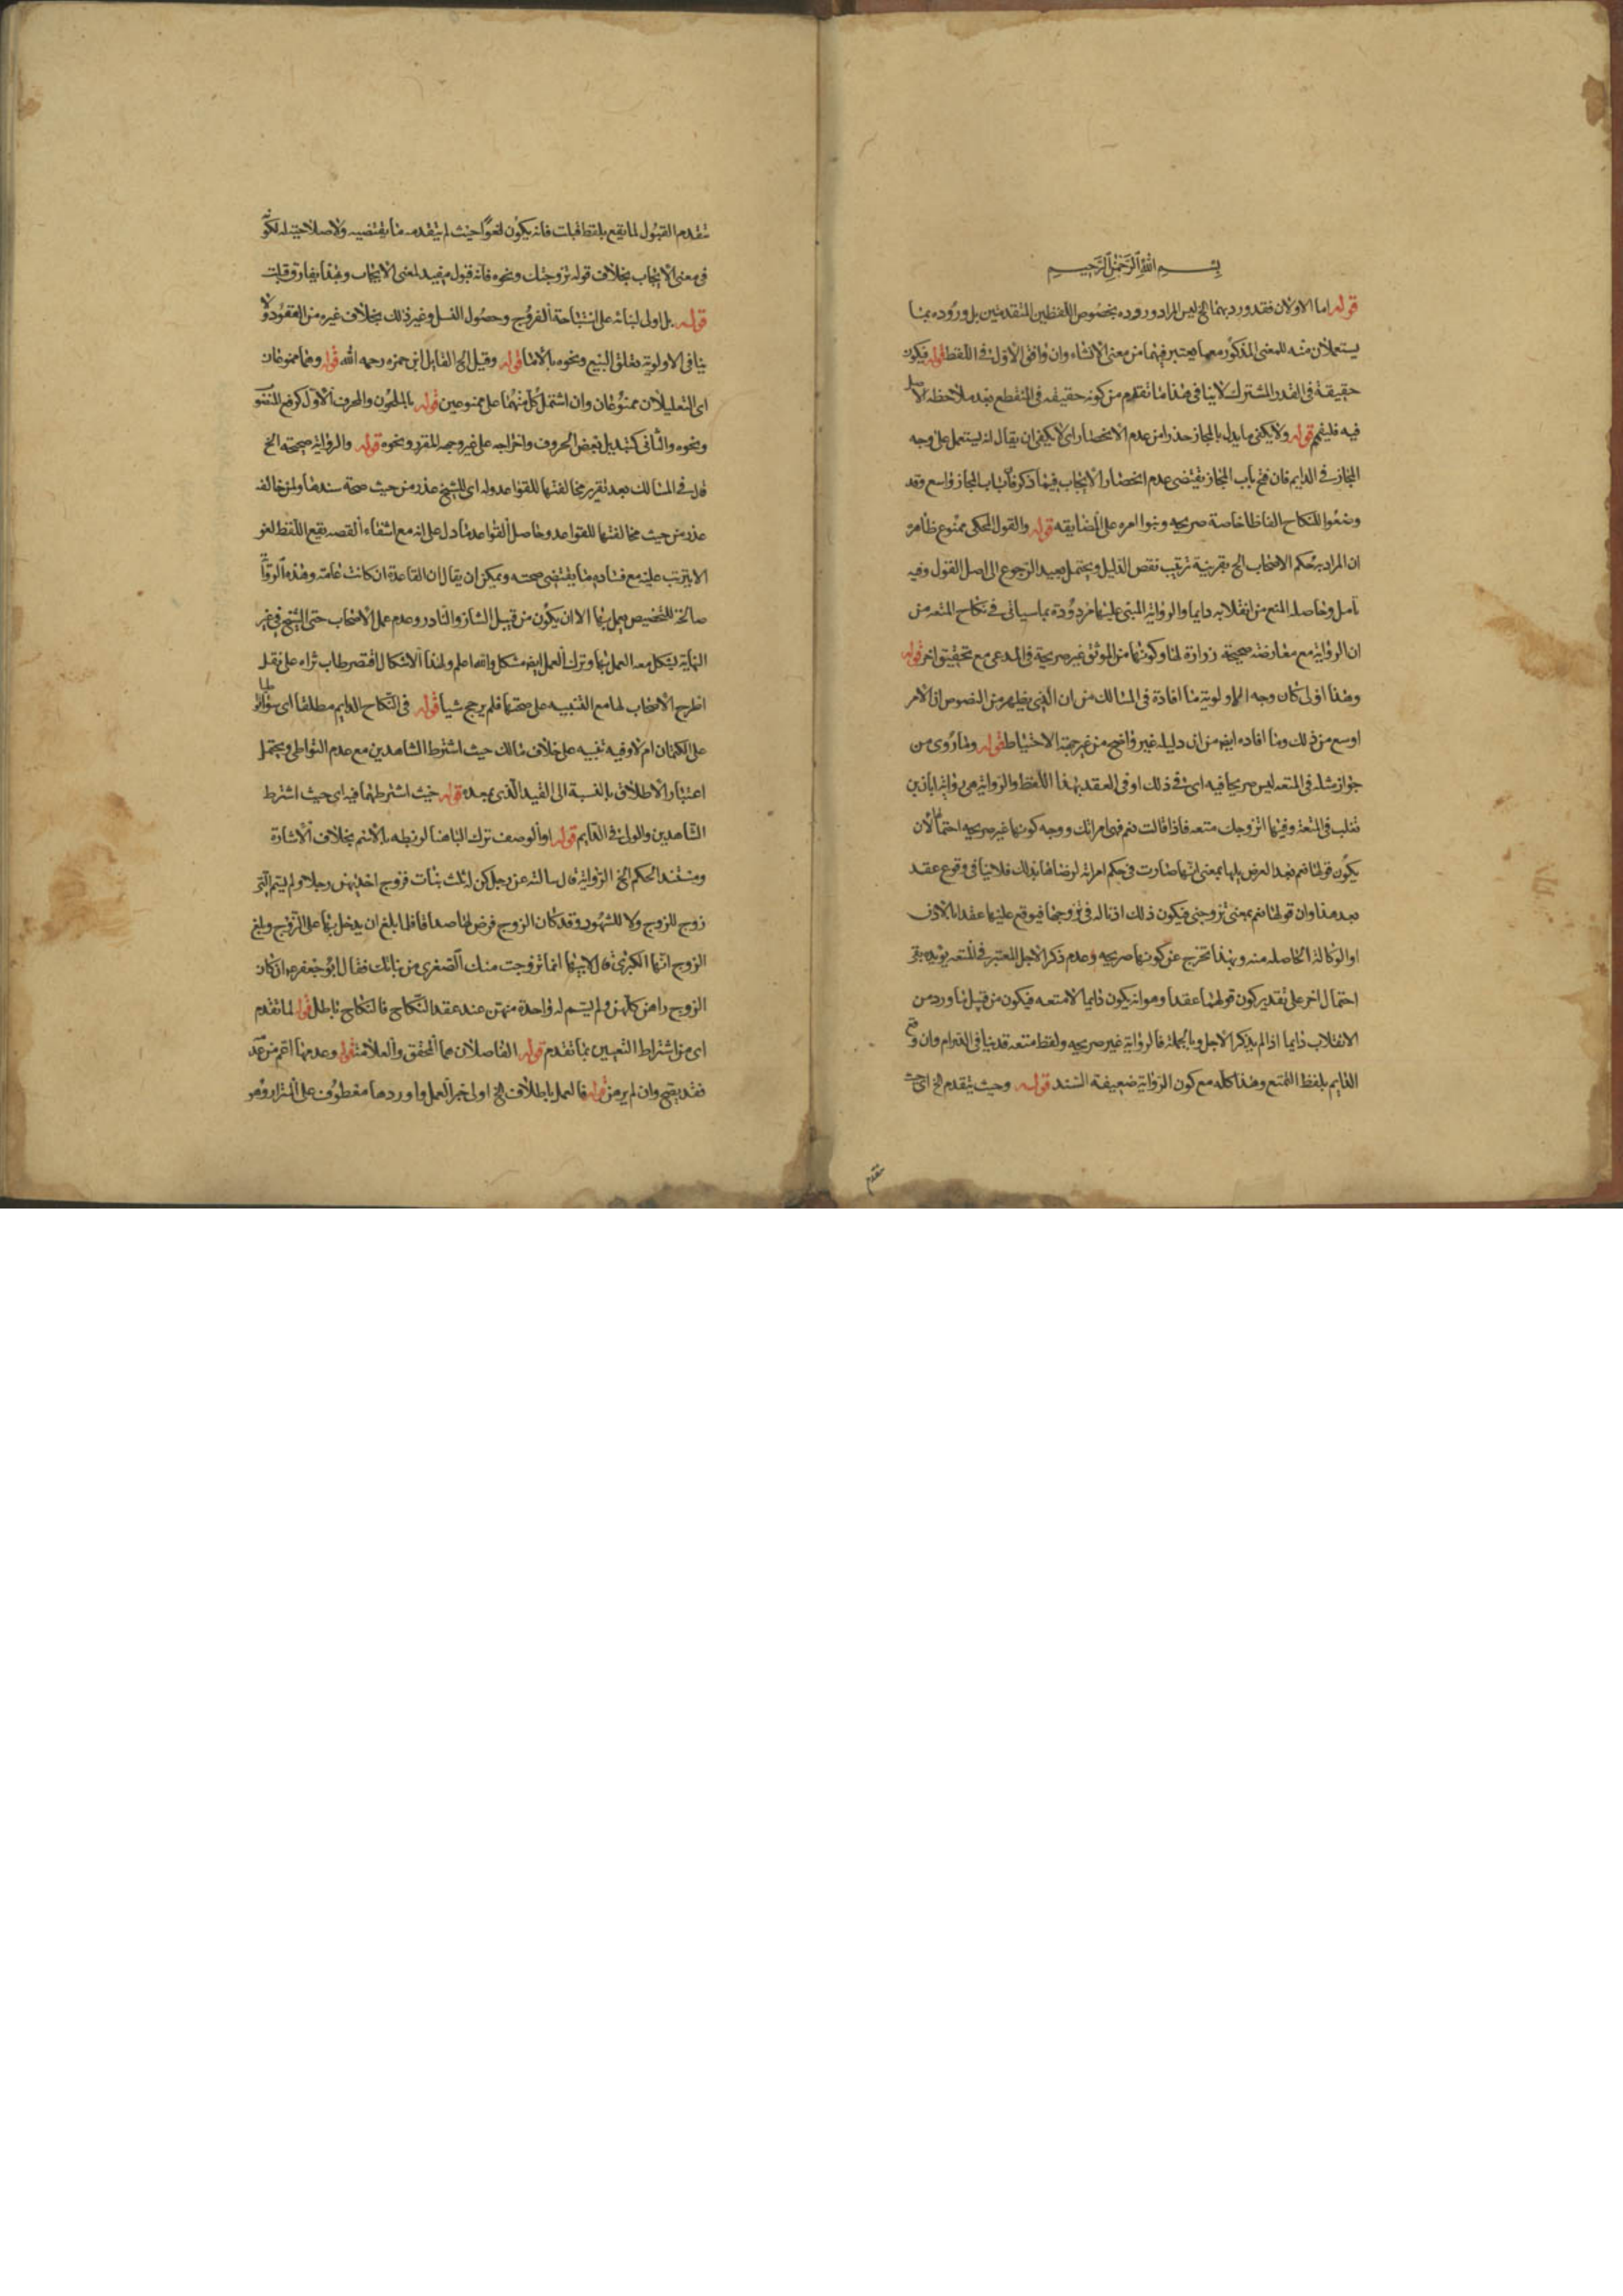 بسم الله الرحمن الرحيم
قوله اما الاولان فقد ورد بهما الخ ليس المراد وروده بخصوص اللفظين المتقدمين بل وروده بما
يستعملان منه للمعنى المذكور معهما يعتبر فيهما من معنى الانشاء وان وافق الاول في اللفظ قوله فيكون
حقيقة في القدر المشترك لا ينافي هذا ما تقدم من كونه حقيقه في المنقطع بعد ملاحظه الاصل
فيه فليفهم قوله ولا يكفي ما يدل بالمجاز حذرا من عدم الانحصار اى لا يكفى ان يقال انه يستعمل على وجه
المجاز في الدايم فان فتح باب المجاز يقتضى عدم انحصار الايجاب فيما ذكر فان باب المجاز واسع وقد
وضعوا للنكاح الفاظا خاصة صريحه وبنوا امره على المضايقه قوله والقول المحكى ممنوع ظاهره
ان المراد به حكم الاصحاب الخ بقرينة ترتيب نقص الدليل ويحتمل بعيد الرجوع الى اصل القول وفيه
تامل وحاصله المنع من انقلابه دايما والرواية المبنى عليها مردودة بما سياتى في نكاح المتعه من
ان الرواية مع معارضة صحيحة زرارة لها وكونها من الموثق غير صريحة في المدعى مع تحقيق اخر قوله
وهذا اولى كان وجه الاولوية ما افادة في المسالك من ان الذى يظهر من النصوص ان الامر
اوسع من ذلك وما افاده ايضا من ان دليله غير واضح من غير جهة الاحتياط قوله وما روى من
جواز مثله في المتعه ليس صريحا فيه اى في ذلك او في العقد بهذا اللفظ والرواية هى رواية ابان بن
تغلب في المتعة وفيها اتزوجك متعه فاذا قالت نعم فهى امراتك ووجه كونها غير صريحه احتمال ان
يكون قولها نعم بعد العرض عليها بمعنى انها صارت في حكم امراته لرضاها بذلك فلا ينافي وقوع عقد
بعد هذا وان قولها نعم بمعنى تزوجنى فيكون ذلك اذنا له في تزوجها فيوقع عليها عقدا بالاذن
او الوكالة الحاصله منه وبهذا تخرج عن كونها صريحه وعدم ذكر الاجل المعتبر في المتعه يؤيد
احتمال اخر على تقدير كون قولهما عقدا وهو انه يكون دايما لا متعه فيكون من قبيل ما ورد من
الانقلاب دايما اذا لم يذكر الاجل وبالجملة فالرواية غير صريحه ولفظ متعه قد ينافي الدوام وان وقع
الدايم بلفظ التمتع وهذا كله مع كون الرواية ضعيفة السند قوله وحيث يتقدم الخ اى حيث
تقدم
تقدم القبول لما يقع بلفظ قبلت فانه يكون لغوا حيث لم يتقدمه ما يقتضيه ولا صلاحية له لكونه
في معنى الايجاب بخلاف قوله تزوجتك ونحوه فانه قبول مفيد لمعنى الايجاب وبهذا يفارق قبلت
قوله بل اولى لبنائه على استباحة الفروج وحصول النسل وغير ذلك بخلاف غيره من العقود ولا
ينافي الاولوية تعلق البيع ونحوه بالاما قوله وقيل الخ القايل ابن حمزه رحمه الله قوله وهما ممنوعان
اى التعليلان ممنوعان وان اشتمل كل منهما على ممنوعين قوله بالملحون والمحرف الاول كرفع المنصوب
ونحوه والثانى كتبديل بعض الحروف واخراجه على غير وجهه المقرر ونحوه قوله والرواية صحيحة الخ
قال في المسالك بعد تقرير مخالفتها للقواعد وله اى للشيخ عذر من حيث صحة سندها ولمن خالفه
عذر من حيث مخالفتها للقواعد وحاصل القواعد ما دل على انه مع انتفاء القصد يقع اللفظ لغو
لا يترتب عليه مع فساده ما يقتضى صحته ويمكن ان يقال ان القاعدة ان كانت عامة وهذه الرواية
صالحة للتخصيص يعمل بها الا ان يكون من قبيل الشاذ والنادر وعدم عمل الاصحاب حتى الشيخ في غير
النهاية يشكل معه العمل بها وترك العمل ايضا مشكل والله اعلم ولهذا الاشكال اقتصر طاب ثراه على نقل
اطرح الاصحاب لها مع التنبيه على صحتها فلم يرجح شيا قوله في النكاح الدايم مطلقا اى سواء تواطيا
على الكتمان ام لا وفيه تنبيه على خلاف مالك حيث اشترط الشاهدين مع عدم التواطى ويحتمل
اعتبار الاطلاق بالنسبة الى القيد الذى بعده قوله حيث اشترطهما فيه اى حيث اشترط
الشاهدين والولى في الدايم قوله او الوصف ترك البا هنا لربطه بالاسم بخلاف الاشارة
ومستند الحكم الخ الرواية قال سالته عن رجل كن له ثلث بنات فزوج احديهن رجلا ولم يسم التى
زوج للزوج ولا للشهود وقد كان الزوج فرض لها صداقا فلما بلغ ان يدخل بها على الزوج وبلغ
الزوج انها الكبرى قال لابيها انما تزوجت منك الصغرى من بناتك فقال ابو جعفر ان كان
الزوج راهن كلهن ولم يسم له واحدة منهن عند عقد النكاح فالنكاح باطل قوله لما تقدم
اى من اشتراط التعيين بما تقدم قوله الفاضلان هما المحقق والعلامة قوله وعدمها اعم من عدمه
فقد يصح وان لم يرهن قوله فالعمل باطلاق الخ اولى خبر العمل واوردهما معطوف على التزام وهو